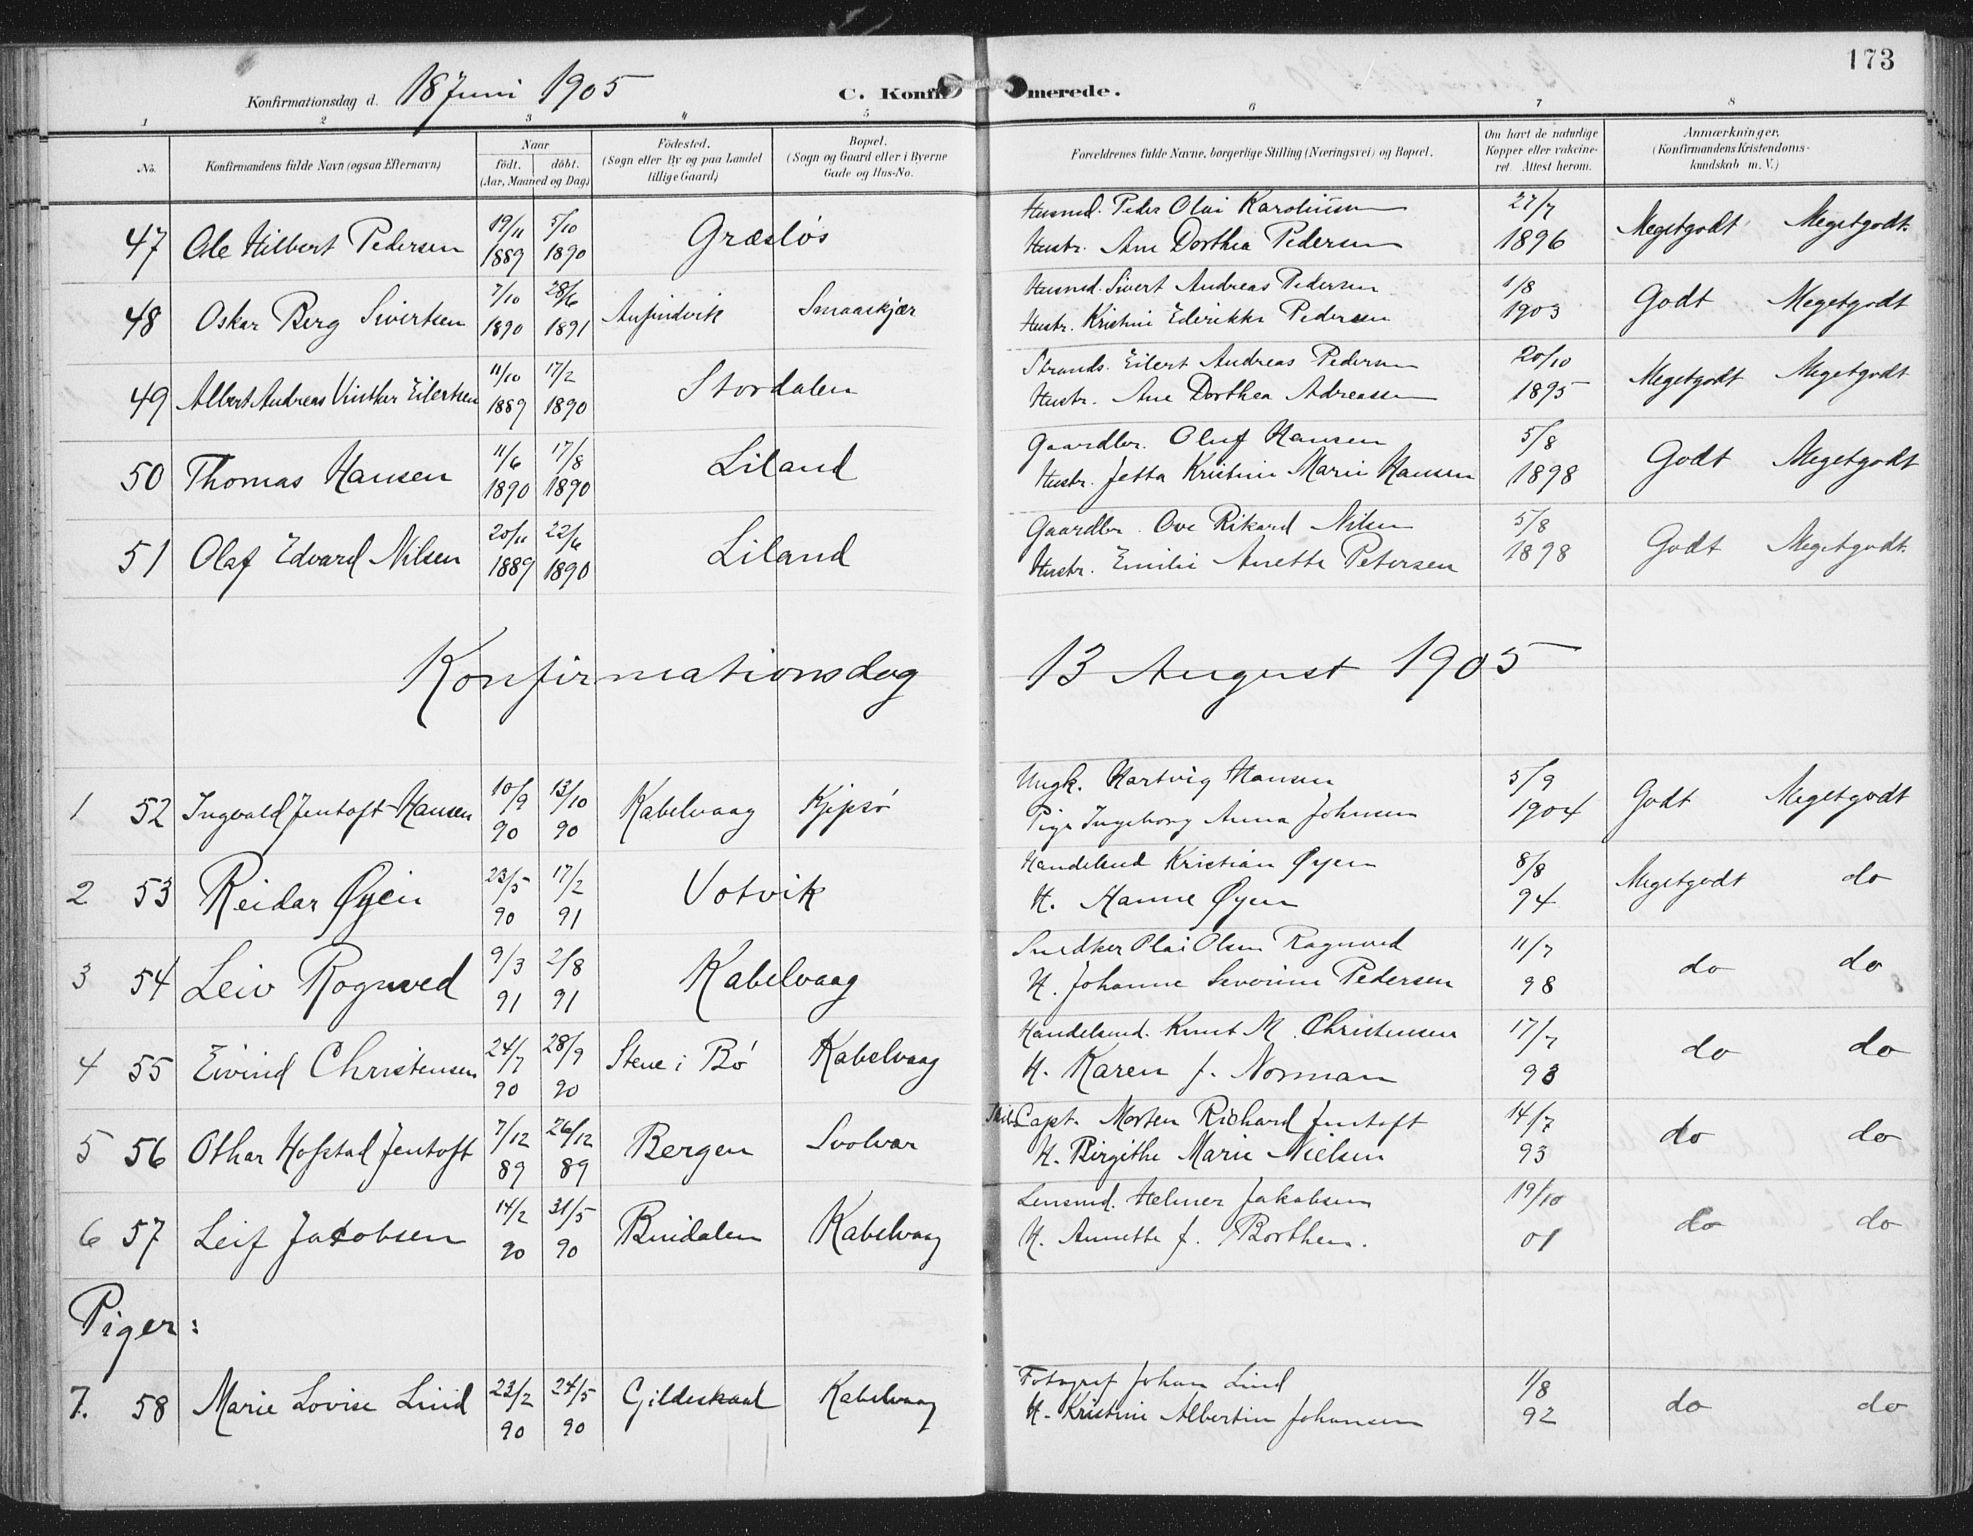 173
Konfirmationsdag d. 18 Juni 1905 C. Konfirmerede.
1 2 3 4 5 6 7 8
No. Konfirmandens fulde Navn (ogsaa Efternavn) Naar födt. döbt. (Aar, Maaned og Dag) Födested. (Sogn eller By og paa Landet tillige Gaard) Bopæl. (Sogn og Gaard eller i Byerne Gade og Hus-No. Forældrenes fulde Navne, borgerlige Stilling (Næringsvei) og Bopæl. Om havt de naturlige Kopper eller vakcineret. Attest herom. Anmærkninger. (Konfirmandens Kristendomskundskab m. V.)
47 Ole Hilbert Pedersen 19/11 1889 5/10 1890 Græsløs Husmd. Peder Olai Karoliussen
Hustr. Ane Dorthea Pedersen 27/7 1896 Megetgodt Megetgodt.
48 Oskar Berg Sivertsen 7/10 1890 28/6 1891 Anfindvik Smaaskjær Husmd. Sivert Andreas Pedersen
Hustr. Kristine Ederikke Pedersen 1/8 1903 Godt Megetgodt
49 Albert Andreas Vinther Eilertsen 11/10 1889 17/2 1890 Stordalen Strands. Eilert Andreas Pedersen
Hustr. Ane Dorthea Adreassen 20/10 1895 Megetgodt Megetgodt
50 Thomas Hansen 11/6 1890 17/8 1890 Liland Gaardbr. Oluf Hansen
Hustr. Jetta Kristine Marie Hansen 5/8 1898 Godt Megetgodt
51 Olaf Edvard Nilsen 20/11 1889 22/6 1890 Liland Gaardbr. Ove Rikard Nilsen
Hustr. Emilie Anette Petersen 5/8 1898 Godt Megetgodt.
Konfirmationsdag 13 August 1905
1 52 Ingvald Jentoft Hansen 10/9 90 13/10 90 Kabelvaag Kjepsø Ungk. Hartvig Hansen
Pige Ingeborg Anna Johnsen 5/9 1904 Godt Megetgodt
2 53 Reidar Øyen 23/5 90 17/2 91 Votvik Handelsmd Kristian Øyen
H. Hanne Øyen 8/8 94 Megetgodt do
3 54 Leiv Rognved 9/3 91 2/8 91 Kabelvaag Snedker Olai Olsen Rognved
H. Johanne Severine Pedersen 11/7 98 do do
4 55 Eivind Christensen 24/7 90 28/9 90 Stene i Bø Kabelvaag Handelsmd. Knut M. Christensen
H. Karen f. Norman 17/7 93 do do
5 56 Othar Hofstad Jentoft 7/12 89 26/12 89 Bergen Svolvær Skibs Capt. Morten Richard Jentoft
H. Birgithe Marie Nielsen 14/7 93 do do
6 57 Leif Jakobsen 14/2 90 31/5 90 Bindalen Kabelvaag Lensmd. Helmer Jakobsen
H. Annette f. Borthen. 19/10 01 do do
Piger:
7. 58 Marie Lovise Lind 23/2 90 24/5 90 Gildeskaal Kabelvaag Fotograf Johan Lind
H. Kristine Albertine Johansen 1/8 92 do do